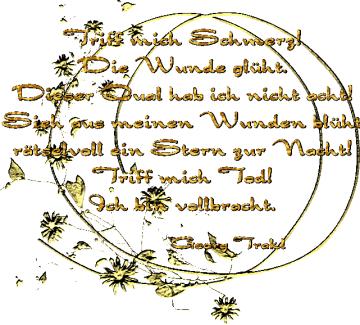 Triff mich Schmerz!
Die Wunde glüht.
Dieser Qual hab ich nicht acht!
Sieh aus meinen Wunden blüht
rätselvoll ein Stern zur Nacht!
Triff mich Tod!
Ich bin vollbracht.
Georg Trakl